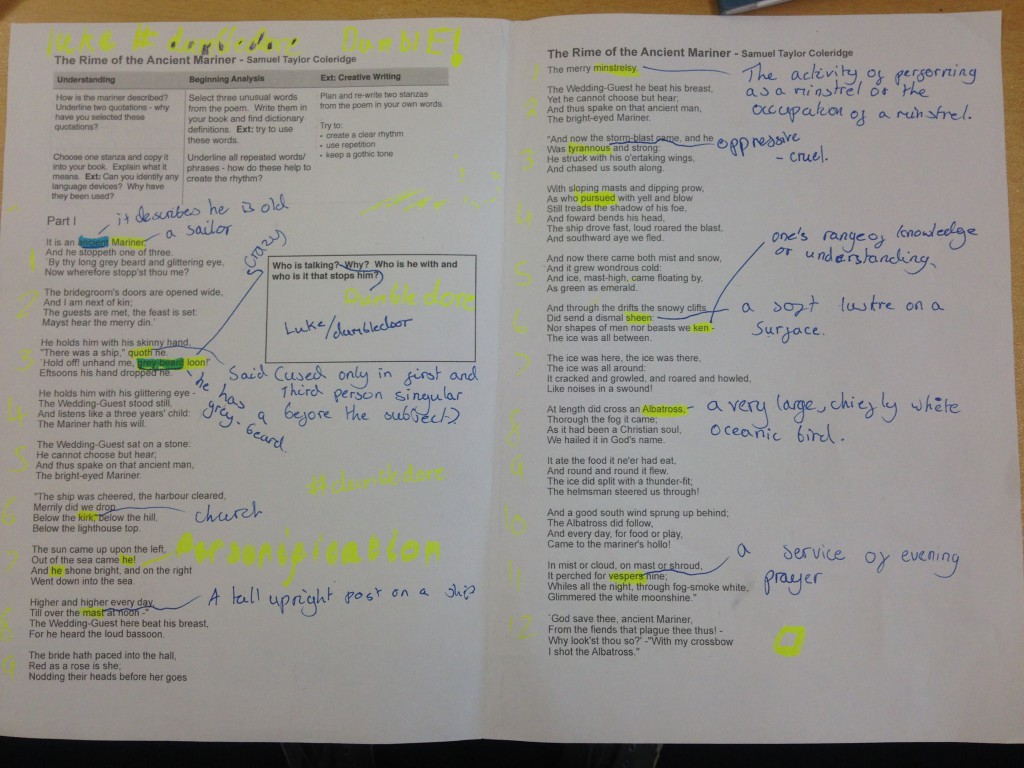 luke # dumbledore DumblE!
The Rime of the Ancient Mariner - Samuel Taylor Coleridge
Understanding
Beginning Analysis
Ext: Creative Writing
How is the mariner described?
Underline two quotations - why
have you selected these
quotations?
Select three unusual words
from the poem. Write them in
your book and find dictionary
definitions. Ext: try to use
these words.
Plan and re-write two stanzas
from the poem in your own words.
Try to:
• create a clear rhythm
• use repetition
• keep a gothic tone
Choose one stanza and copy it
into your book. Explain what it
means. Ext: Can you identify any
language devices? Why have
they been used?
Underline all repeated words/
phrases - how do these help to
create the rhythm?
Part I
it describes he is old
a sailor
It is an ancient Mariner,
And he stoppeth one of three.
`By thy long grey beard and glittering eye,
Now wherefore stopp'st thou me?
1
crazy
Who is talking? Why? Who is he with and
who is it that stops him?
dumbledore
Luke/dumbledoor
The bridegroom's doors are opened wide,
And I am next of kin;
The guests are met, the feast is set:
Mayst hear the merry din.'
2
He holds him with his skinny hand,
"There was a ship," quoth he.
`Hold off! unhand me, grey-beard loon!'
Eftsoons his hand dropped he.
3
Said (used only in first and
third person singular
before the subject)
he has
grey
a
beard.
He holds him with his glittering eye -
The Wedding-Guest stood still,
And listens like a three years' child:
The Mariner hath his will.
4
The Wedding-Guest sat on a stone:
He cannot choose but hear;
And thus spake on that ancient man,
The bright-eyed Mariner.
5
#dumbledore
"The ship was cheered, the harbour cleared,
Merrily did we drop
Below the kirk, below the hill,
Below the lighthouse top.
6
church
The sun came up upon the left,
Out of the sea came he!
And he shone bright, and on the right
Went down into the sea.
7
Personification
Higher and higher every day,
Till over the mast at noon -"
The Wedding-Guest here beat his breast,
For he heard the loud bassoon.
8
A tall upright post on a ship
The bride hath paced into the hall,
Red as a rose is she;
Nodding their heads before her goes
9
The Rime of the Ancient Mariner - Samuel Taylor Coleridge
The merry minstrelsy.
1
The activity of performing
as a minstrel or the
occupation of a minstrel.
The Wedding-Guest he beat his breast,
Yet he cannot choose but hear;
And thus spake on that ancient man,
The bright-eyed Mariner.
2
"And now the storm-blast came, and he
Was tyrannous and strong:
He struck with his o'ertaking wings,
And chased us south along.
3
oppressive
- cruel.
With sloping masts and dipping prow,
As who pursued with yell and blow
Still treads the shadow of his foe,
And foward bends his head,
The ship drove fast, loud roared the blast,
And southward aye we fled.
4
one's range of knowledge
or understanding.
And now there came both mist and snow,
And it grew wondrous cold:
And ice, mast-high, came floating by,
As green as emerald.
5
And through the drifts the snowy clifts
Did send a dismal sheen:
Nor shapes of men nor beasts we ken -
The ice was all between.
6
a soft lustre on a
surface.
The ice was here, the ice was there,
The ice was all around:
It cracked and growled, and roared and howled,
Like noises in a swound!
7
At length did cross an Albatross,
Thorough the fog it came;
As it had been a Christian soul,
We hailed it in God's name.
8
- a very large, chiefly white
oceanic bird.
It ate the food it ne'er had eat,
And round and round it flew.
The ice did split with a thunder-fit;
The helmsman steered us through!
9
And a good south wind sprung up behind;
The Albatross did follow,
And every day, for food or play,
Came to the mariner's hollo!
10
In mist or cloud, on mast or shroud,
It perched for vespers nine;
Whiles all the night, through fog-smoke white,
Glimmered the white moonshine."
11
a service of evening
prayer
`God save thee, ancient Mariner,
From the fiends that plague thee thus! -
Why look'st thou so?' -"With my crossbow
I shot the Albatross."
12